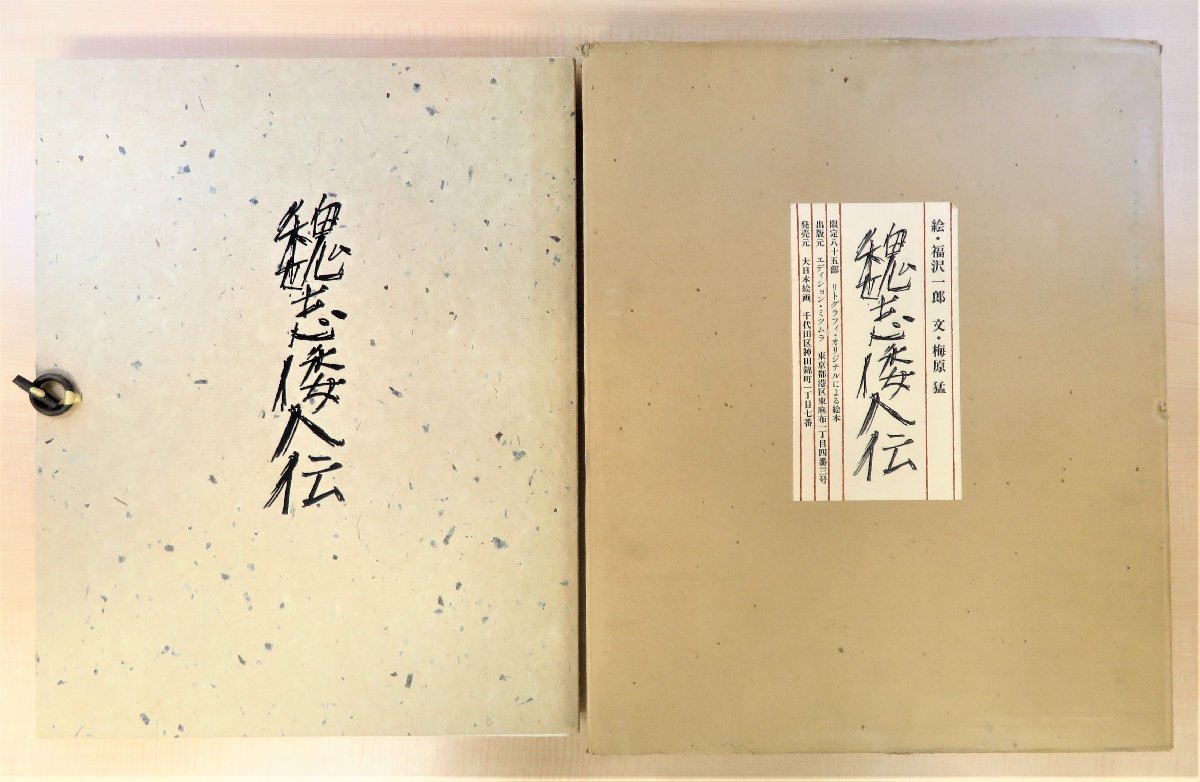 魏志倭人伝
絵・福沢一郎 文・梅原 猛
魏志倭人伝
限定八十五部 リトグラフィ・オリジナルによる絵本
出版元 エディション・ミツムラ 東京都港区東麻布一丁目四番三号
発売元 大日本絵画 千代田区神田錦町一丁目七番